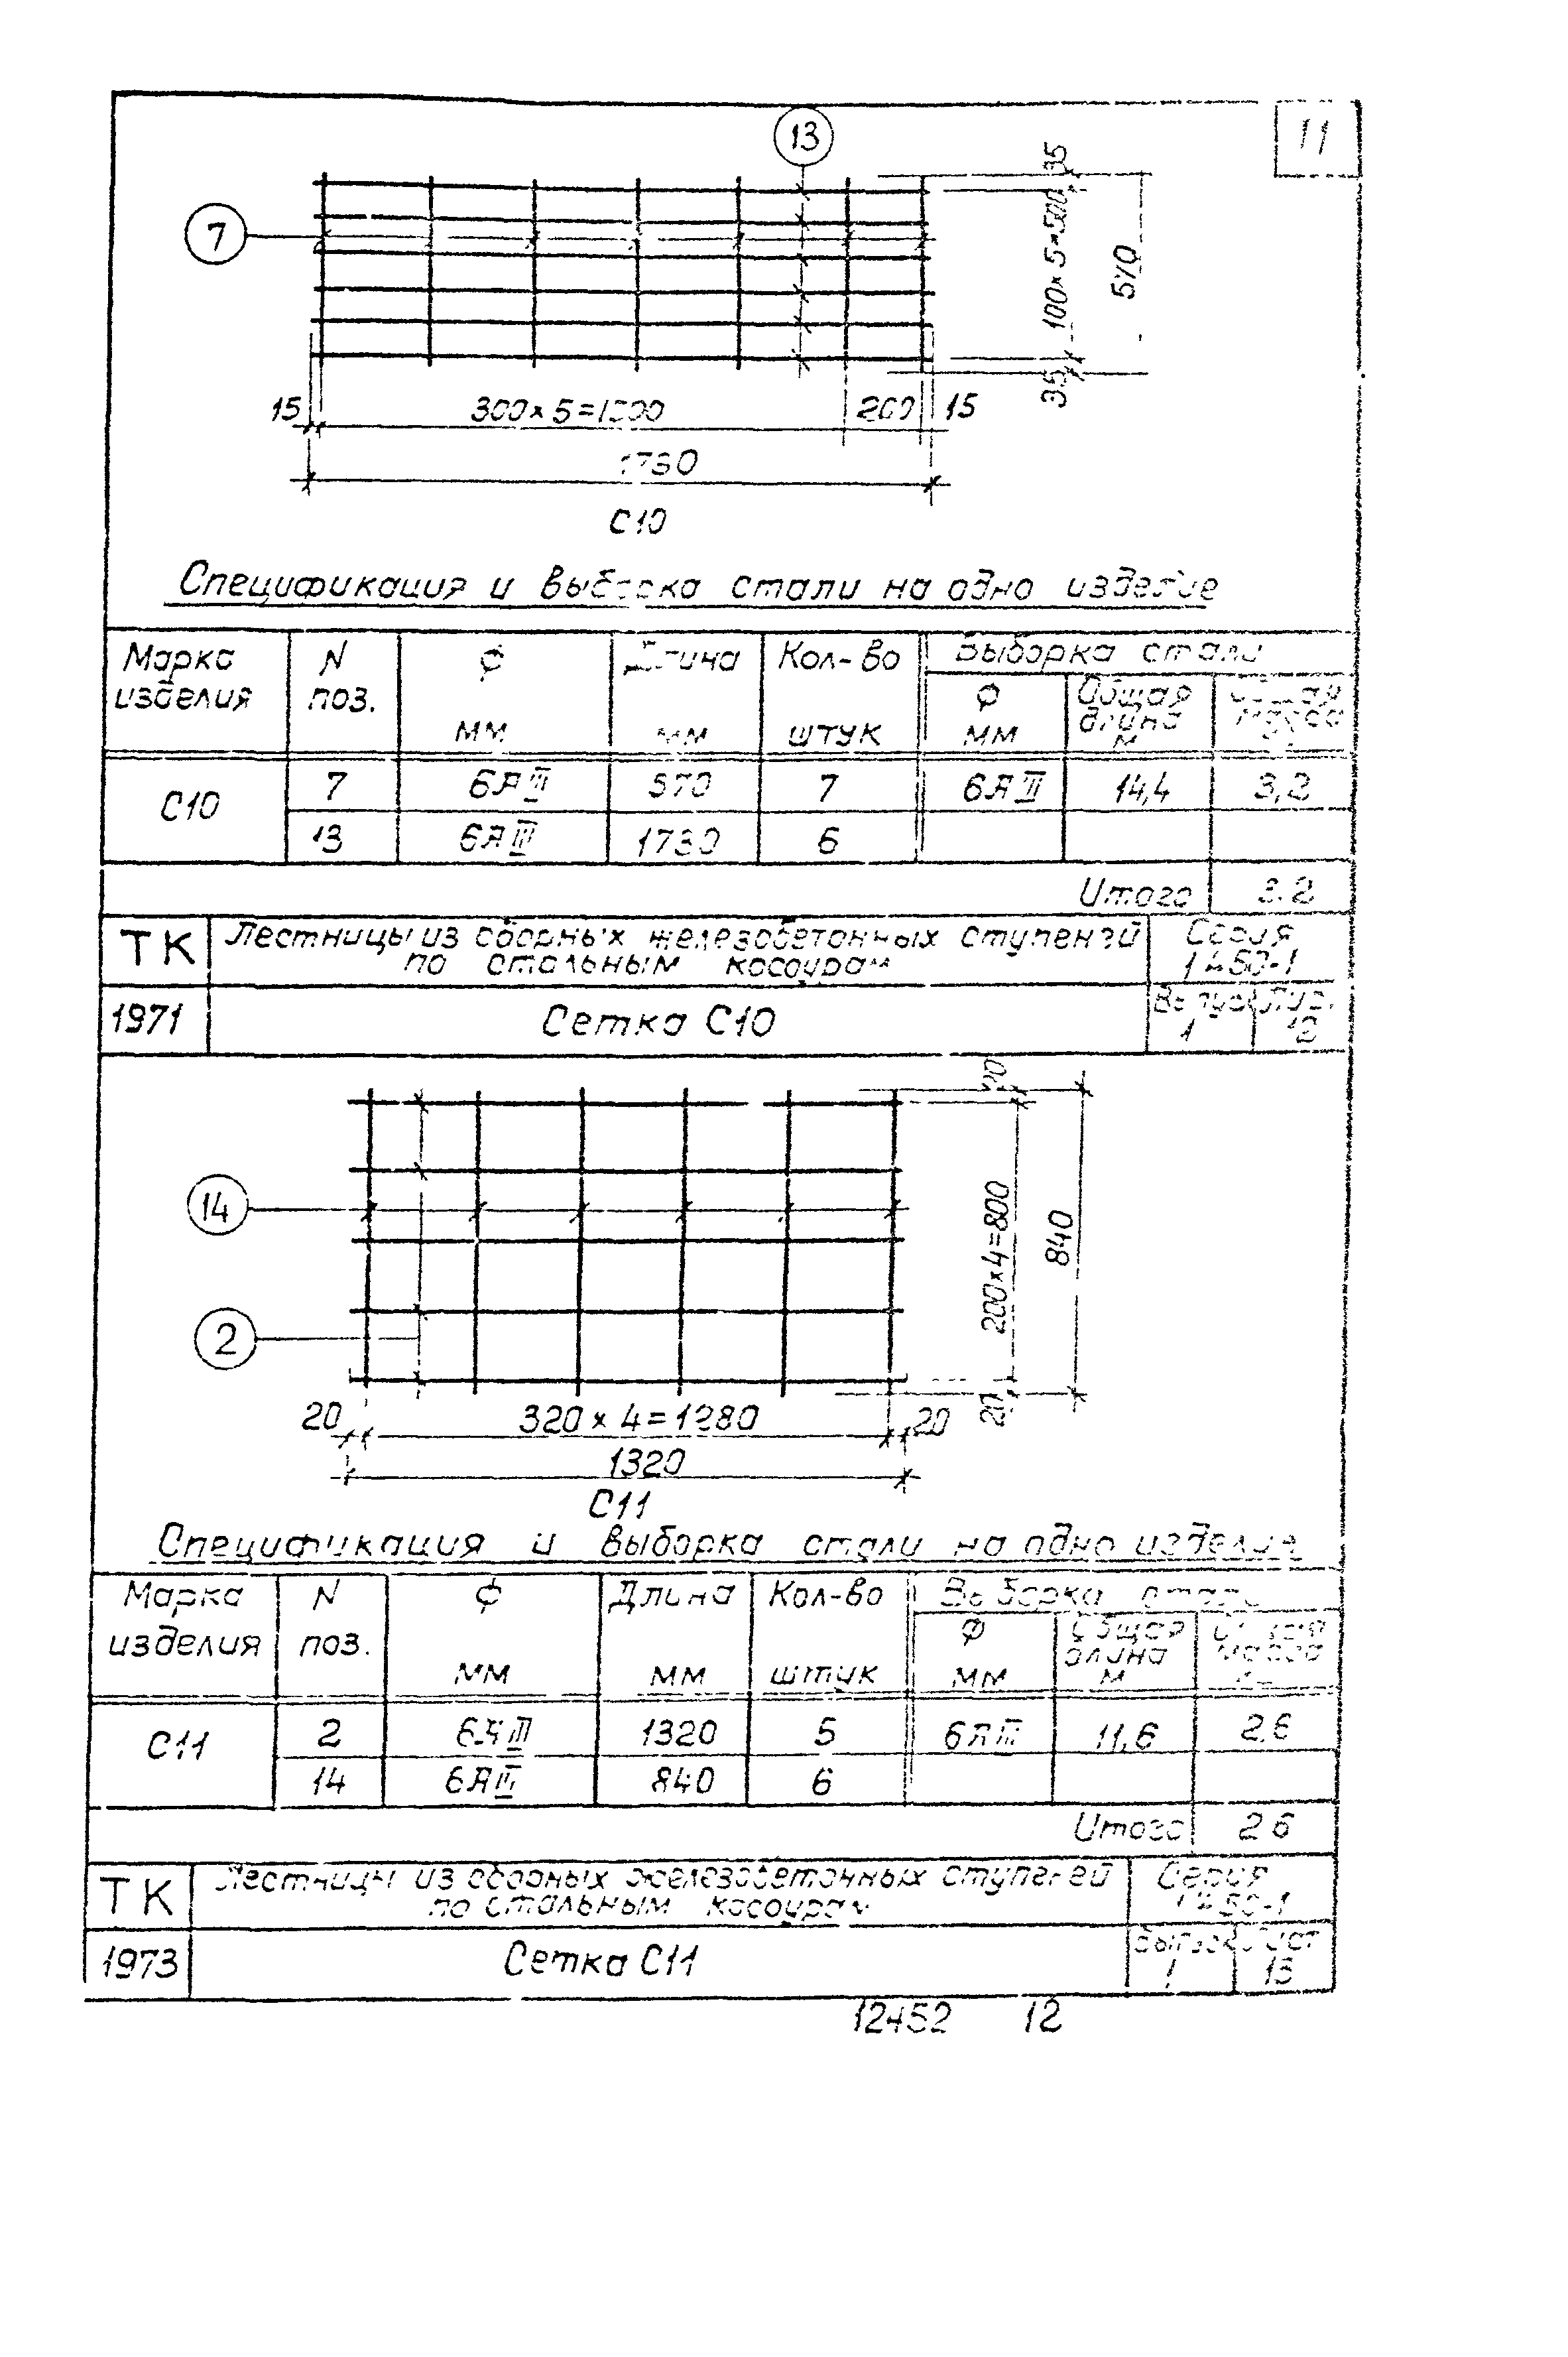 11
13
7
35
100×5=500
570
35
15 300×5=1500 200 15
1730
С10
Спецификация и выборка стали на одно изделие
Марка изделия N поз. Ф мм Длина мм Кол-во штук Выборка стали
Ф мм Общая длина м Общая масса
С10 7 6АIII 570 7 6АIII 14,4 3,2
13 6АIII 1730 6
Итого 3.2
ТК Лестницы из сборных железобетонных ступеней Серия
по стальным косоурам 1.450-1
1971 Сетка С10 Выпуск 1 Лист 12
20
14
200×4=800
840
2
20
20 320×4=1280 20
1320
С11
Спецификация и выборка стали на одно изделие
Марка изделия N поз. Ф мм Длина мм Кол-во штук Выборка стали
Ф мм Общая длина м Общая масса
С11 2 6АIII 1320 5 6АIII 11,6 2,6
14 6АIII 840 6
Итого 2.6
ТК Лестницы из сборных железобетонных ступеней Серия
по стальным косоурам 1.450-1
1973 Сетка С11 Выпуск 1 Лист 13
12452 12